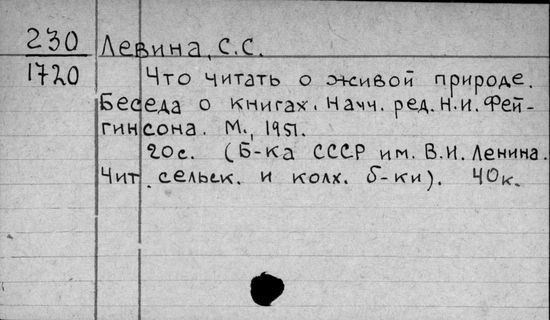 230 Левина, С.С.
1720 Что читать о живой природе.
Беседа о книгах. Научн. ред. Н.И. Фей-
гинсона. М., 1951.
20с. (Б-ка СССР им. В.И. Ленина.
Чит. сельск. и колх. б-ки). 40к.